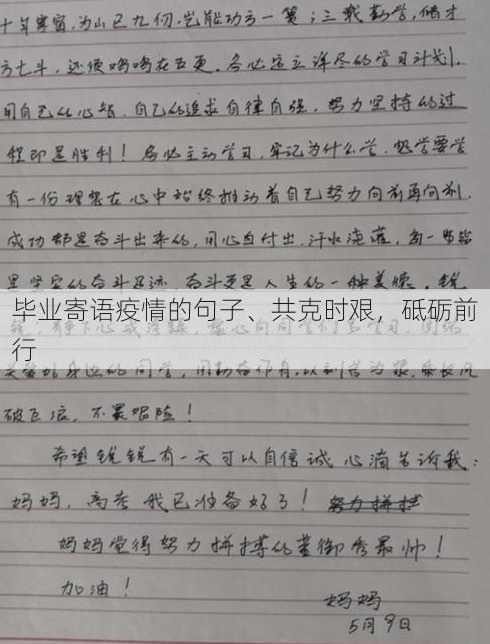 十年寒窗,为山已九仞,岂能功亏一篑;三载勤学,储才
方七斗,还须鸣鸡在五更。务必定立详尽的学习计划,
用自己的心智,自己的追求自律自强,努力坚持的过
程即是胜利!务必主动学习,牢记为什么学,想学要学
有一份理想在心中始终推动着自己努力向前再向前。
成功都是奋斗出来的,用心自付出,汗水浇灌,每一步皆
是坚实的奋斗足迹,奋斗更是人生的一种美德。锐
毕业寄语疫情的句子、共克时艰,砥砺前
行
关爱的身边的同学,用勤奋作舟,以刻苦为桨,乘长风
破巨浪,不畏艰险!
希望锐锐有一天可以自信诚心满满告诉我:
妈妈,高考我已准备好了!努力拼搏
妈妈觉得努力拼搏的董御秀最帅!
加油!
妈妈
5月9日